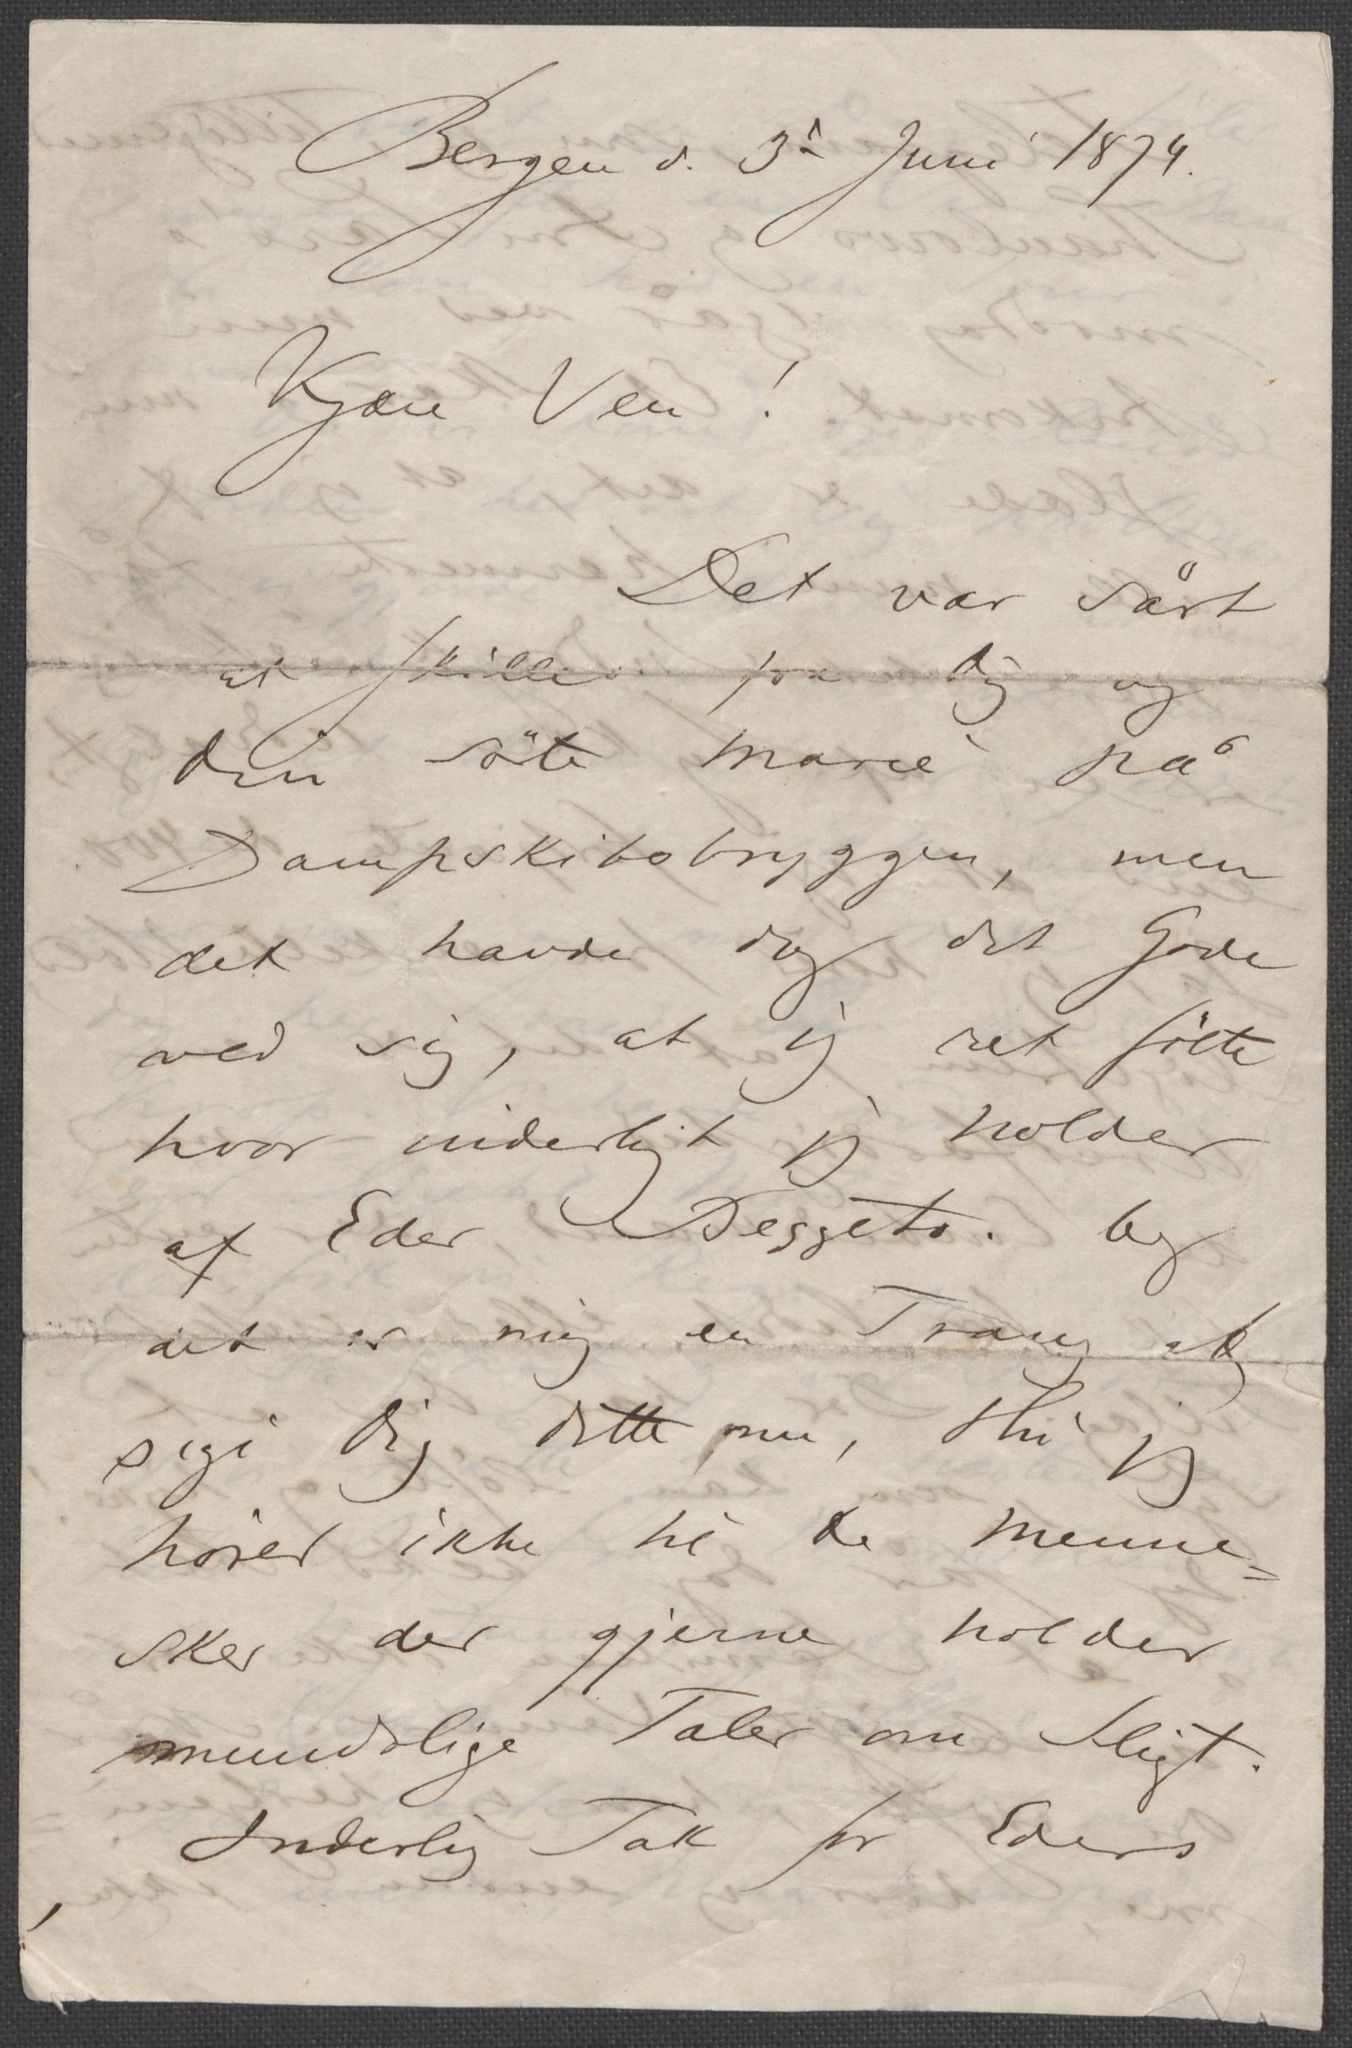 Bergen d. 3d Juni 1874.
Kjære Ven!
Det var sårt
at skilles fra Dig og
din söte Marie på
Dampskibsbryggen, men
det havde dog det Gode
ved sig, at jg ret fölte
hvor inderligt jg holder
af Eder Begge to. Og
det er mig en Trang at
sige Dig dette nu, thi jg
hörer ikke til de Menne=
sker der gjerne holder
mundtlige Taler om Sligt.
Inderlig Tak for Eders